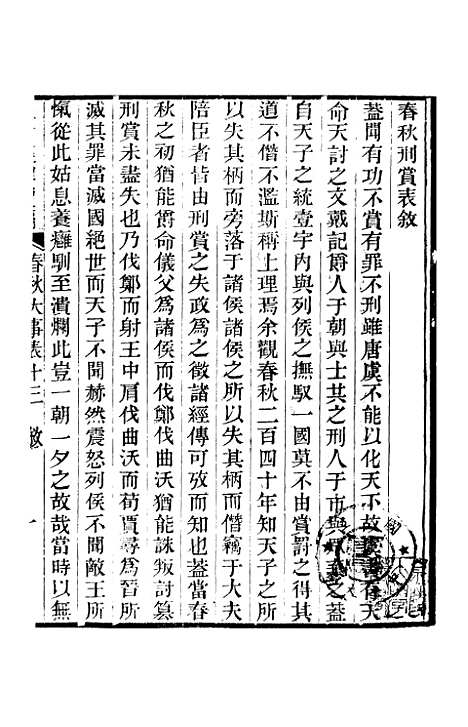 春秋刑賞表敘
蓋聞有功不賞有罪不刑雖唐虞不能以化天下故書有天
命天討之文戴記爵人于朝與士共之刑人于市與衆棄之蓋
自天子之統壹宇內與列侯之撫馭一國莫不由賞罰之得其
道不僭不濫斯稱上理焉余觀春秋二百四十年知天子之所
以失其柄而旁落于諸侯諸侯之所以失其柄而僭竊于大夫
陪臣者皆由刑賞之失政爲之徵諸經傳可攷而知也蓋當春
秋之初猶能爵命儀父爲諸侯而伐鄭伐曲沃猶能誅叛討篡
刑賞未盡失也乃伐鄭而射王中肩伐曲沃而荀賈尋爲晉所
滅其罪當滅國絕世而天子不聞赫然震怒列侯不聞敵王所
愾從此姑息養癰馴至潰爛此豈一朝一夕之故哉當時以無
春秋大事表十三 敘 一